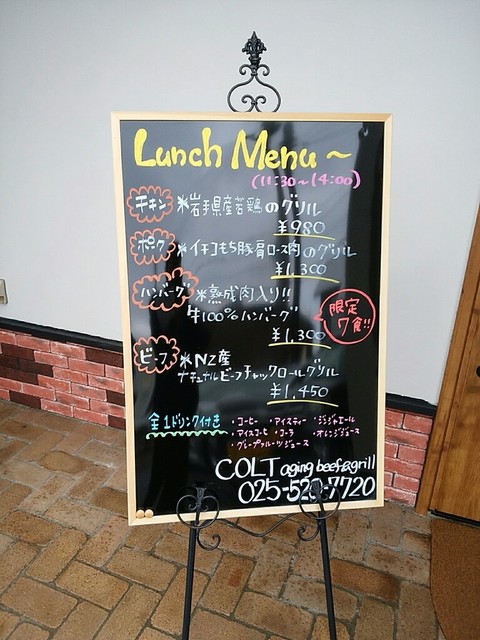 Lunch Menu ~
(11:30~14:00)
チキン ※岩手県産若鶏のグリル
¥980
ポーク ※イチコもち豚肩ロース肉のグリル
¥1,300
ハンバーグ ※熟成肉入り!!
牛100%ハンバーグ
限定
7食!!
¥1,300
ビーフ ※NZ産
ナチュラルビーフチャックロールグリル
¥1,450
全1ドリンク付き ・コーヒー ・アイスティー ・ジンジャエール
・アイスコーヒ ・コーラ ・オレンジジュース
・グレープフルーツジュース
COLT aging beef&grill
7720